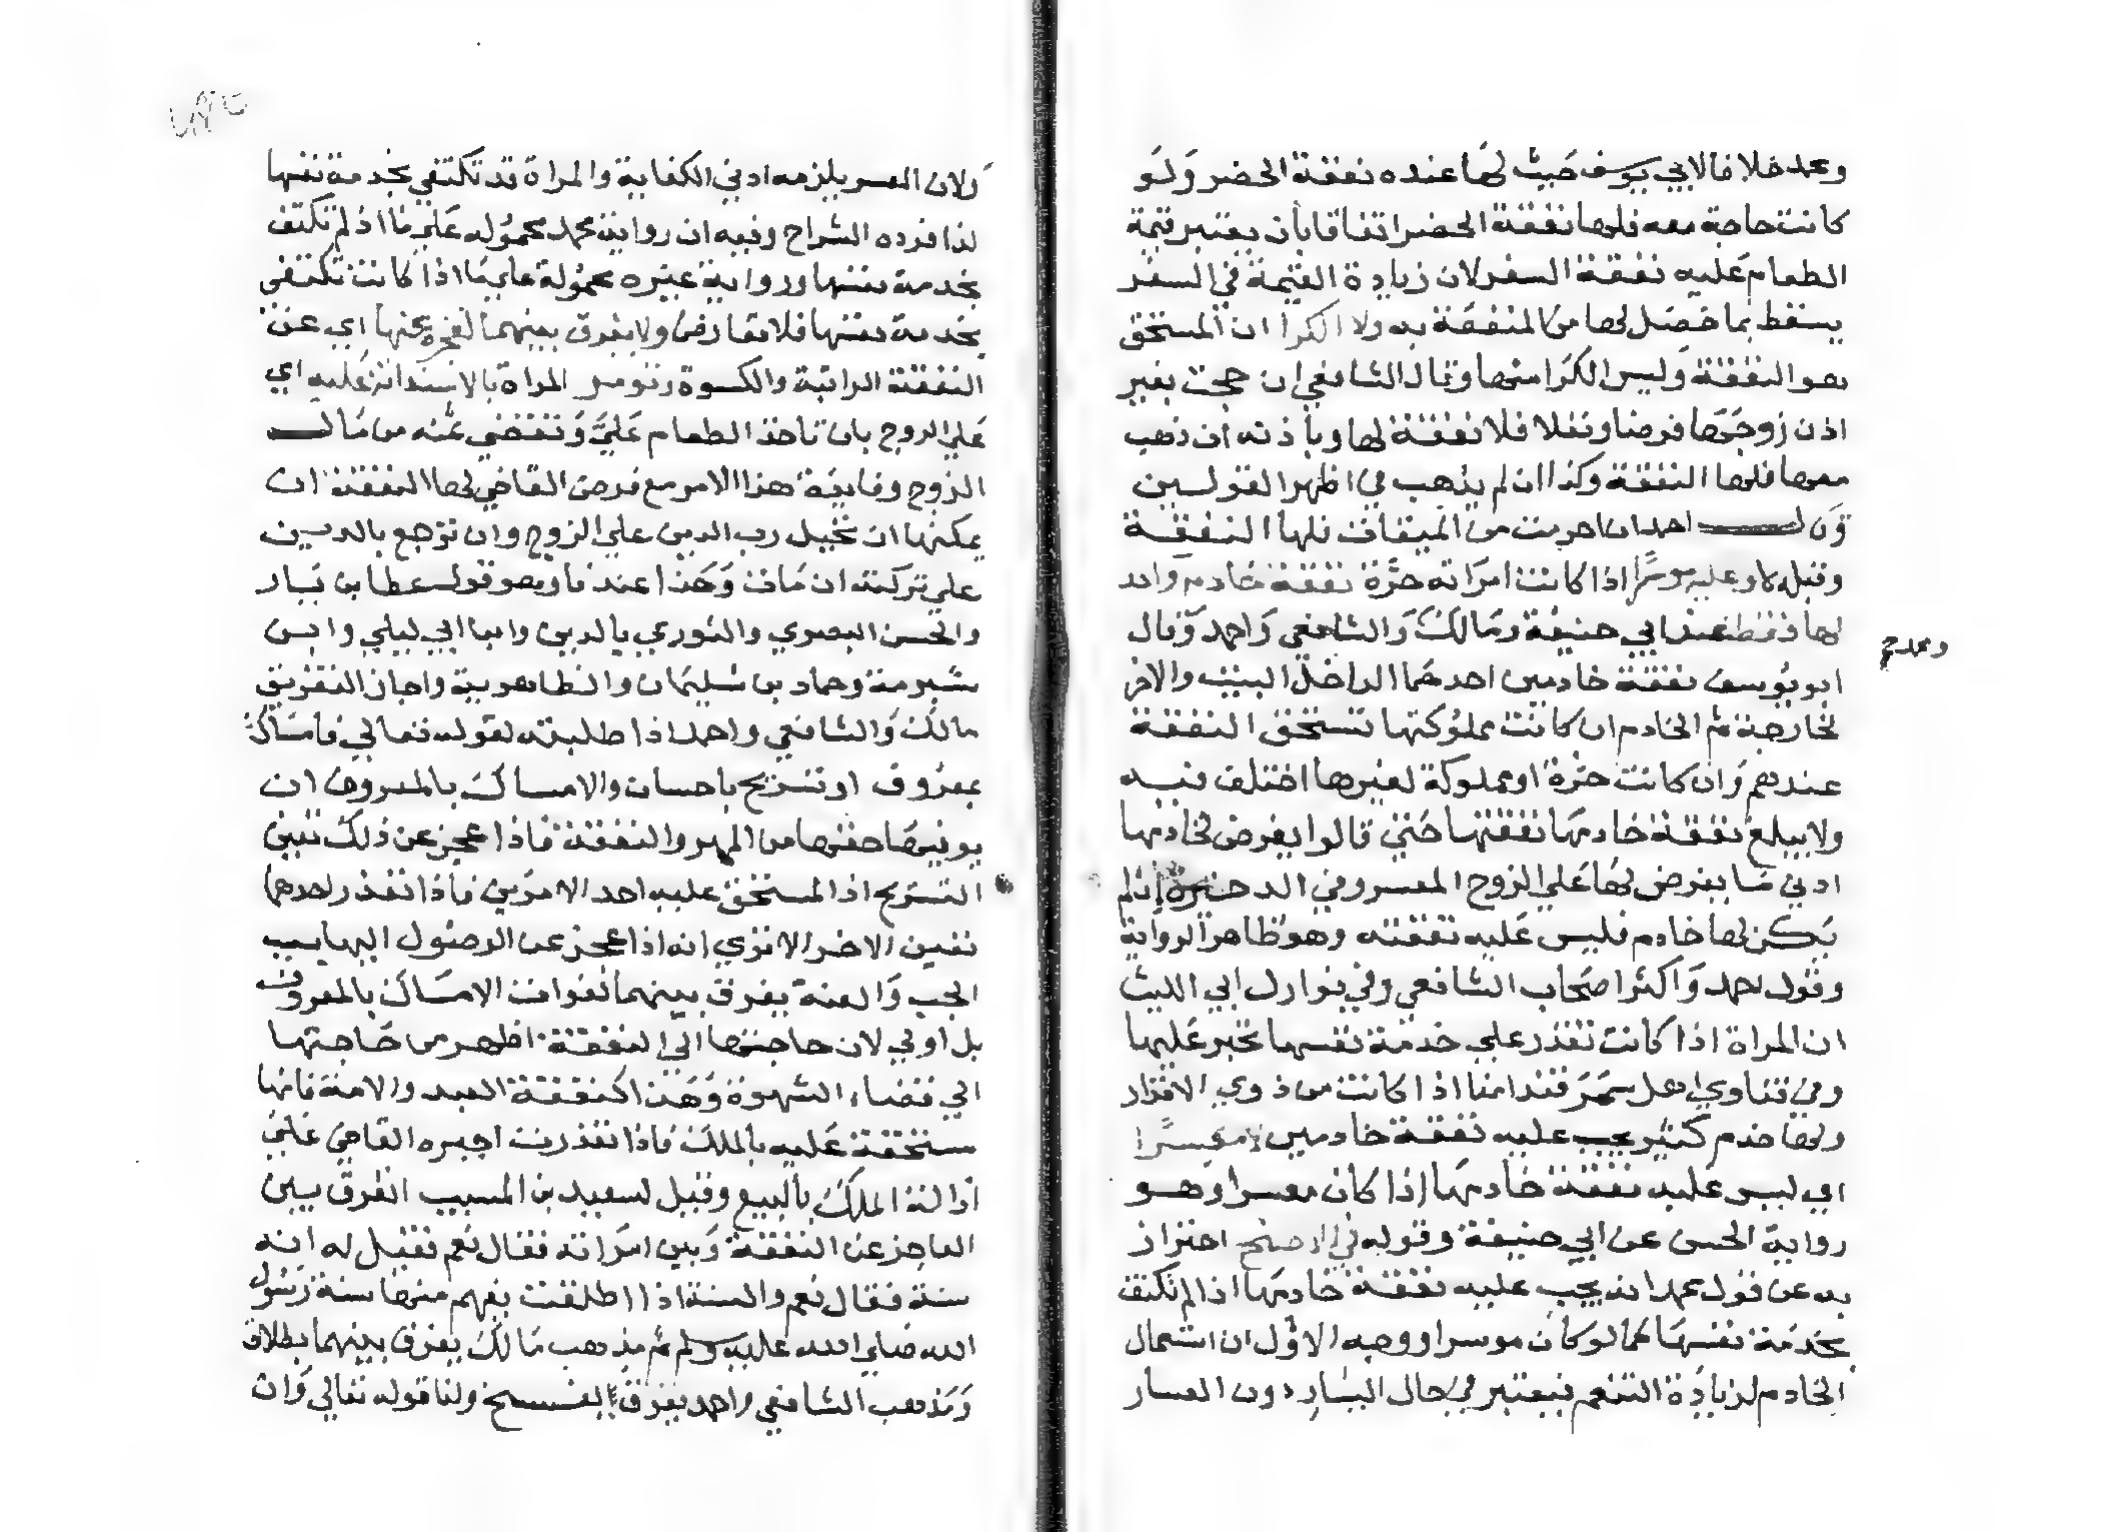 ومحمد خلافا لابي يوسف حيث لها عنده نفقة الحضر ولو
كانت حاجة معه فلها نفقة الحضر اتفاقا بان يعتبر قيمة
الطعام عليه نفقة السفر لان زيادة القيمة في السفر
يسقط بما حصل لها من المنفعة به ولا الكرا ان المستحق
هو النفقة وليس الكرا منها وقال الشافعي ان حجت بغير
اذن زوجها فرضا ونفلا فلا نفقة لها وباذنه ان ذهب
معها فلها النفقة وكذا ان لم يذهب في اظهر القولين
وعن احمد ان احرمت من الميقات فلها النفقة
وقيل لا وعليه موسرا اذا كانت امراته حرة نفقة خادم واحد
لها فقط عند ابي حنيفة ومالك والشافعي واحمد وقال
ومحمد صح
ابو يوسف نفقة خادمين احدهما الداخل البيت والاخر
لخارجة ثم الخادم ان كانت مملوكتها تستحق النفقة
عندهم وان كانت حرة او مملوكة لغيرها اختلف فيه
ولا يبلغ نفقة خادمها نفقتها حتى قالوا يفرض لخادمها
ادني ما يفرض لها علي الزوج المعسر وفي الدخيرة ان لم
يكن لها خادم فليس عليه نفقته وهو ظاهر الرواية
وقول احمد واكثر اصحاب الشافعي وفي نوازل ابي الليث
ان المراة اذا كانت تقدر علي خدمة نفسها تجبر عليها
وفي فتاوي اهل سمرقند امنا اذا كانت من ذوي الاقدار
ولها خدم كثير يجب عليه نفقة خادمين لا معسرا
اي ليس عليه نفقة خادمها اذا كان معسرا وهو
رواية الحسن عن ابي حنيفة وقوله في الاصح احتراز
به عن قول محمد انه يجب عليه نفقة خادمها اذا لم تكتف
بخدمة نفسها كما لو كان موسرا ووجه الاول ان استعمال
الخادم لزيادة التنعم فيعتبر في حال اليسار دون العسار
ولان المعسر يلزمه ادني الكفاية والمراة قد تكتفي بخدمة نفسها
لذا قرره الشراح وفيه ان رواية محمد محمولة علي ما اذ لم تكتف
بخدمة نفسها ورواية غيره محمولة علي ما اذا كانت تكتفي
بخدمة نفسها فلا تعارض ولا يفرق بينهما لعجزه عنها اي عن
النفقة الراتبة والكسوة وتومر المراة بالاستدانة عليه اي
علي الزوج بان تاخذ الطعام علي وتقضي عنه من مال
الزوج وفايدة هذا الامر مع فرض القاضي لها النفقة ان
يمكنها ان تحيل رب الدين علي الزوج وان ترجع بالدين
علي تركته ان مات وهذا عندنا وهو قول عطا بن يسار
والحسن البصري والثوري بالدين وابنا ابي ليلي وابن
شبرمة وحماد بن سليمان والظاهرية واجاز التفريق
مالك والشافعي واحمد اذا طلبته لقوله تعالي فامساك
بمعروف او تسريح باحسان والامساك بالمعروف ان
يوفيها حقها من المهر والنفقة فاذا عجز عن ذلك تبني
التسريح اذ المستحق عليه احد الامرين فاذا تعذر احدهما
تعين الاخر الا تري انه اذا عجز عن الوصول اليها بسبب
الجب والعنة يفرق بينهما لفوات الامساك بالمعروف
بل اولي لان حاجتها الي النفقة اظهر من حاجتها
الي قضاء الشهوة وهذا كنفقة العبد والامة فانها
مستحقة عليه بالملك فاذا تعذرت اجبره القاضي علي
ازالة الملك بالبيع وقيل لسعيد بن المسيب اتفرق بين
العاجز عن النفقة وبين امراته فقال نعم فقيل له انه
سنة فقال نعم والسنة اذا اطلقت يفهم منها سنة رسول
الله صلي الله عليه وسلم ثم مذهب مالك يفرق بينهما بطلاق
ومذهب الشافعي واحمد يفرق بالفسخ ولنا قوله تعالي وان